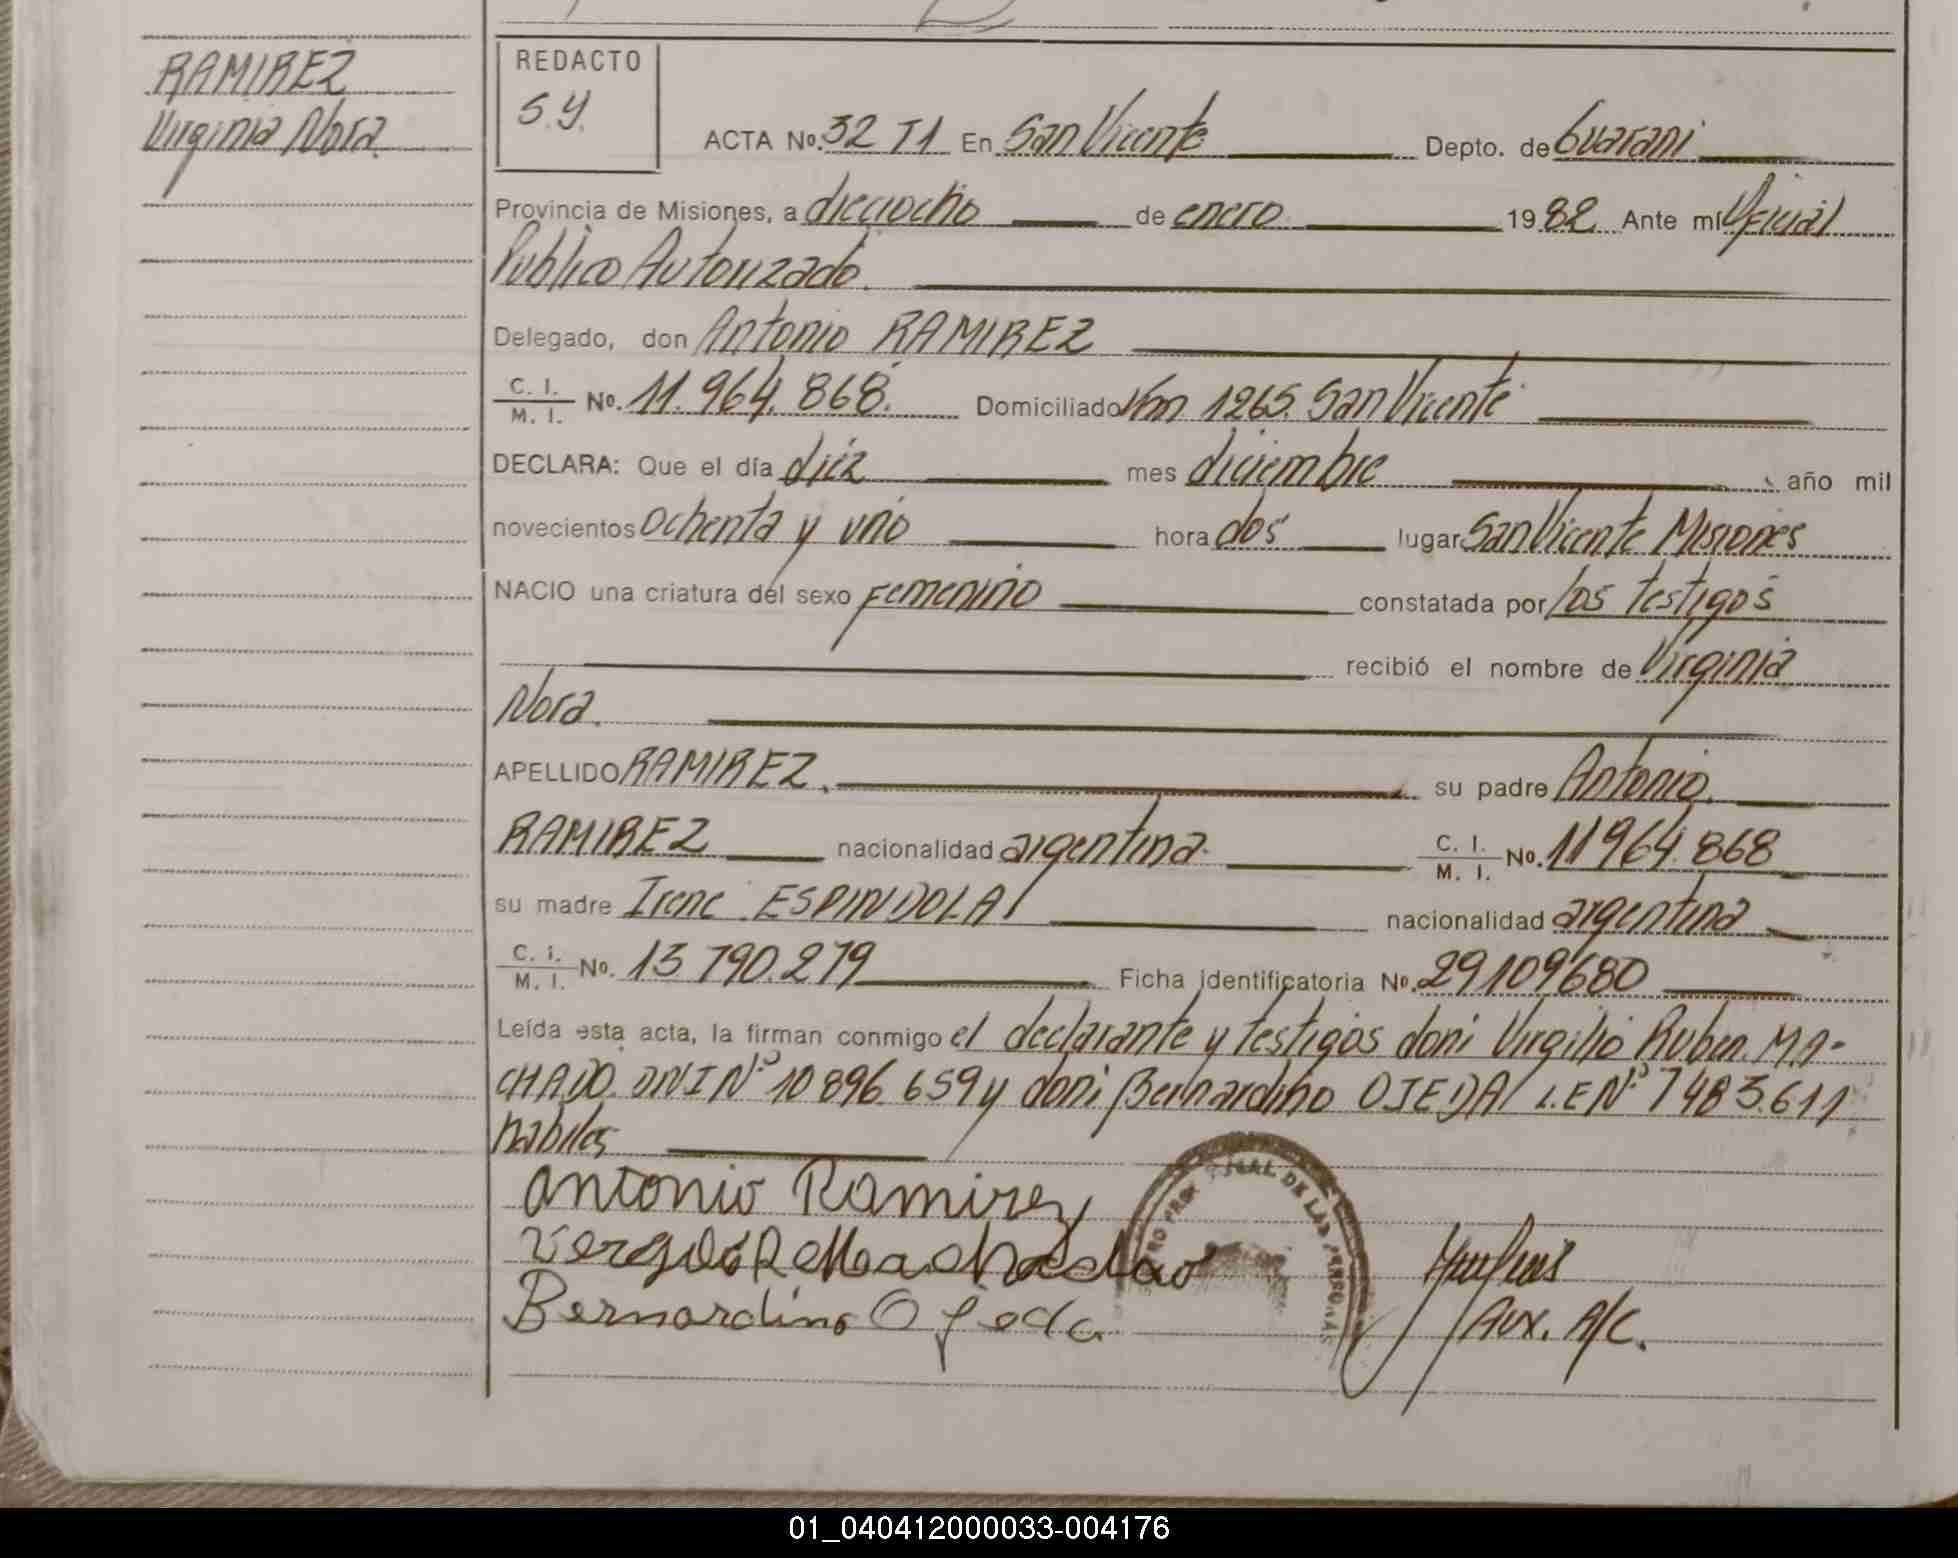 RAMIREZ
Virginia Nora
REDACTO
S.Y.
ACTA No. 32 T1 En San Vicente Depto. de Guarani
Provincia de Misiones, a dieciocho de enero 1982 Ante mí Oficial
Publico Autorizado.
Delegado, don Antonio RAMIREZ
C. I. / M. I. No. 11.964.868. Domiciliado Km 1265. San Vicente
DECLARA: Que el día diéz mes diciembre año mil
novecientos ochenta y uno hora dos lugar San Vicente Misiones
NACIO una criatura del sexo femenino constatada por los testigos
recibió el nombre de Virginia
Nora.
APELLIDO RAMIREZ. su padre Antonio
RAMIREZ nacionalidad argentina C. I. / M. I. No. 11964.868
su madre Irene ESPINDOLA nacionalidad argentina
C. I. / M. I. No. 13.790.279 Ficha identificatoria No. 29109680
Leída esta acta, la firman conmigo el declarante y testigos don: Virgilio Ruben MA-
CHADO. DNI Nº 10896.659 y don: Bernardino OJEDA L.E Nº 7483.611
habiles
Antonio Ramirez
Vergilio R Machado
Bernardino Ojeda
DE LAS PERSONAS
Aux. A/C.
01_040412000033-004176